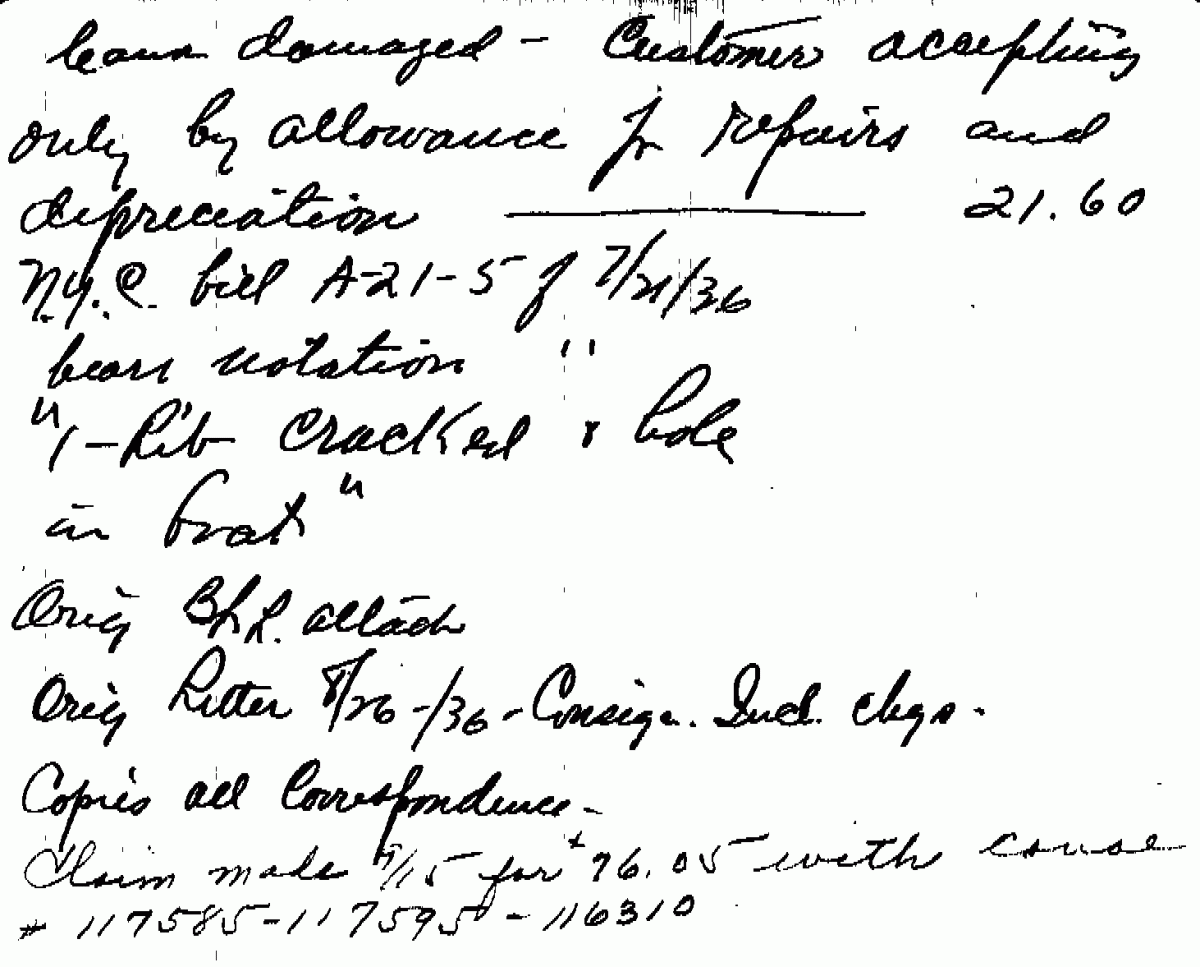 damaged - Customer accepting
only by allowance for repairs and
depreciation 21.60
N.Y.C. bill A-21-5 of 7/21/36
bears notation "
"1-Rib cracked & hole
in boat"
Orig B/L. attach
Orig Letter 8/26-/36 - Consign. Incl. chgs.
Copies all Correspondence -
Claim made 9/15 for 96.05 with
# 117585-117595 - 116310